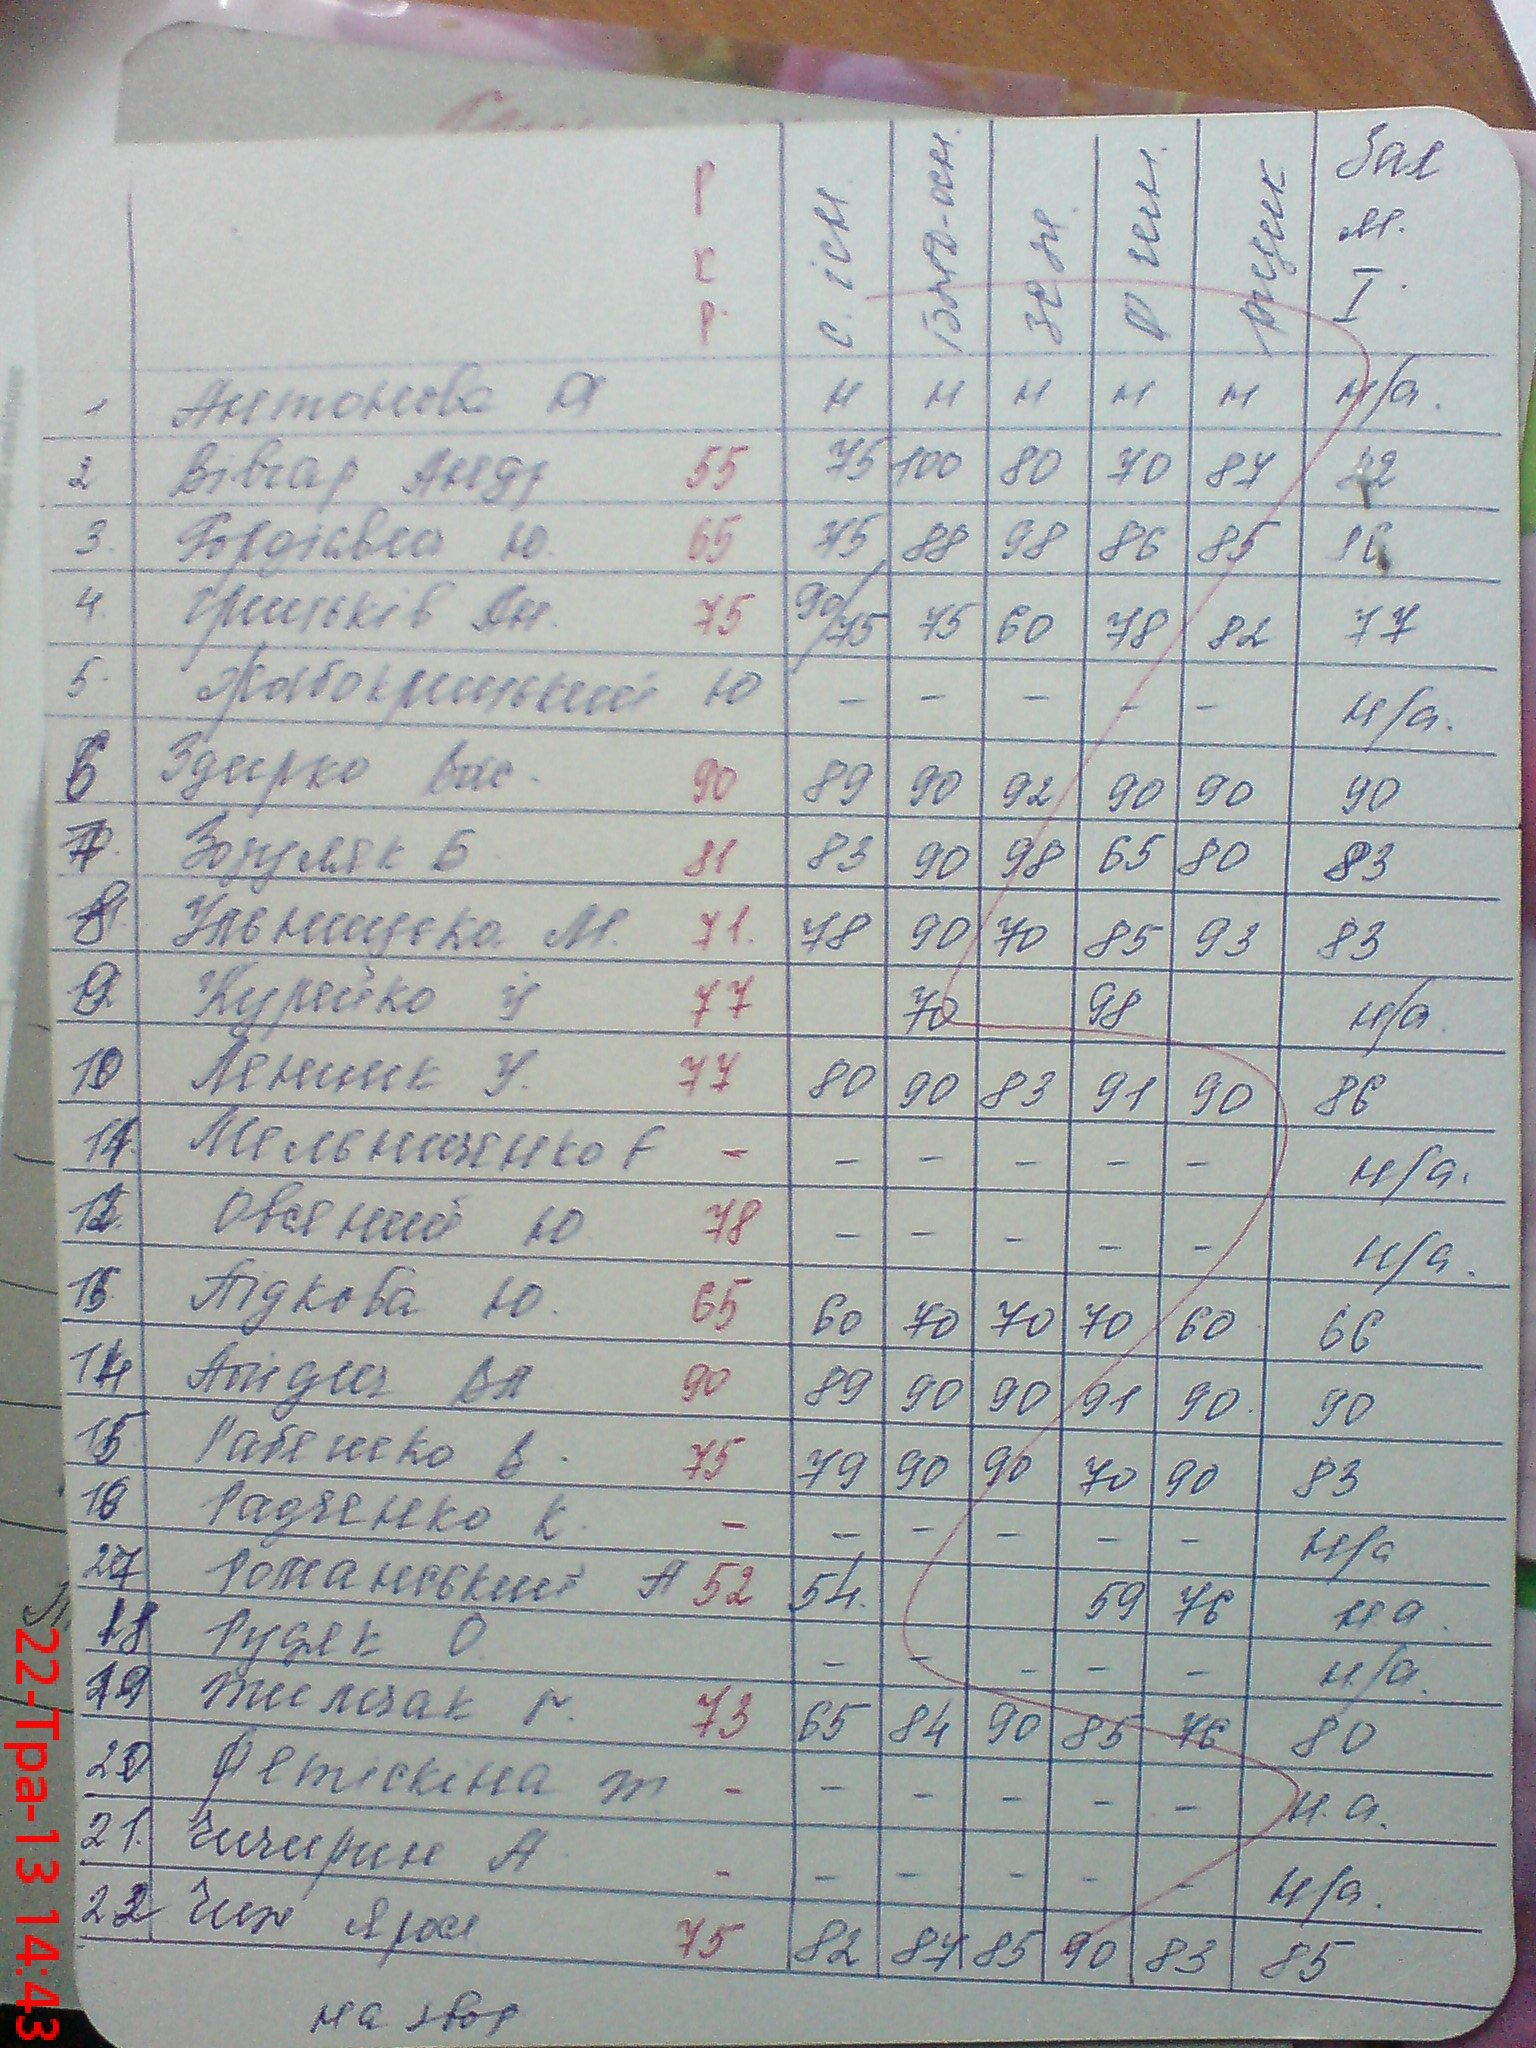 Р К Р с. ісп. зел. Зал м. I.
1 Антонова н н н н н н/а.
2 Вівчар Андр 55 75 100 80 70 87 82
3. Ю. 65 75 88 98 86 85 86
4. Гриньків Ан. 75 90/75 75 60 78 82 77
5. Жабокрицький Ю - - - - - н/а.
6 Здирко Вас. 90 89 90 92 90 90 90
7 Зозуляк Б 81 83 90 98 65 80 83
8 М. 71. 78 90 70 85 93 83
9 Курейко 77 70 98 н/а.
10 У. 77 80 90 83 91 90 86
11 Мельниченко Є - - - - - - н/а.
12 Овсяний Ю 78 - - - - - н/а.
13 Підкова Ю. 65 60 70 70 70 60 66
14 90 89 90 90 91 90. 90
15 В. 75 79 90 90 70 90 83
16 Радченко К. - - - - - - н/а
17 Романський А 52 54. 59 76 н.а.
18 Рудяк О. - - - - - н/а.
19 Тимчак Г. 73 65 84 90 85 76 80
20 Фетіскіна Т - - - - - - н.а.
21. Чичирин А - - - - - - н/а.
22 Чиж Яросл 75 82 87 85 90 83 85
на звор
22-Тра-13 14:43